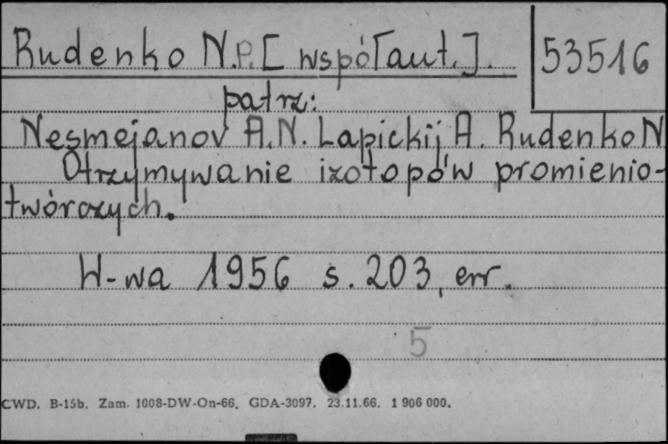 Rudenko N.P. [ współaut.].
53516
patrz:
Nesmejanov A.N. Lapickij A. Rudenko N
Otrzymywanie izotopów promienio-
twórczych.
W-wa 1956 s. 203, err.
5
CWD. B-15b. Zam. 1008-DW-On-66. GDA-3097. 23.11.66. 1 906 000.